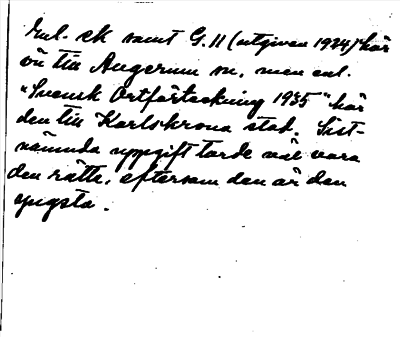 Enl. ek samt G. 11 (utgiven 1924) hör
ön till Augerum sn, men enl.
"Svensk Ortförteckning 1935" hör
den till Karlskrona stad. Sist-
nämnda uppgift torde väl vara
den rätta, eftersom den är den
yngsta.